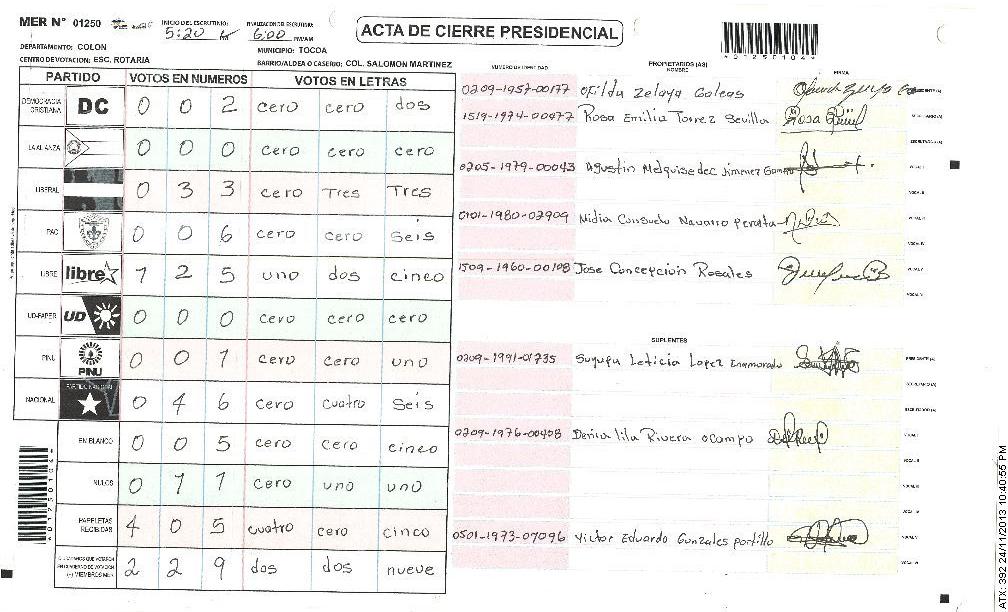 MER N° 01250
INICIO DEL ESCRUTINIO:
5:20
FINALIZACION DEL ESCRUTINIO:
6:00 PM/AM
ACTA DE CIERRE PRESIDENCIAL
DEPARTAMENTO: COLON
MUNICIPIO: TOCOA
CENTRO DE VOTACION: ESC. ROTARIA
BARRIO/ALDEA O CASERIO: COL. SALOMON MARTINEZ
PARTIDO VOTOS EN NUMEROS VOTOS EN LETRAS
DEMOCRACIA CRISTIANA DC 0 0 2 cero cero dos
LA ALIANZA 0 0 0 cero cero cero
LIBERAL 0 3 3 cero Tres Tres
PAC 0 0 6 cero cero Seis
LIBRE libre 1 2 5 uno dos cinco
UD-FAPER UD 0 0 0 cero cero cero
PINU PINU 0 0 1 cero cero uno
NACIONAL PARTIDO NACIONAL 0 4 6 cero cuatro Seis
EN BLANCO 0 0 5 cero cero cinco
NULOS 0 1 1 cero uno uno
PAPELETAS RECIBIDAS 4 0 5 cuatro cero cinco
(+) MIEMBROS MER 2 2 9 dos dos nueve
NUMERO DE IDENTIDAD PROPIETARIOS (AS) NOMBRE FIRMA
0209-1957-00177 Ofilda Zelaya Galeas
1519-1974-00477 Rosa Emilia Torrez Sevilla
0205-1979-00043 Agustin Melquisedec Jimenez
0101-1980-02909 Nidia Consuelo Navarro Peralta
1509-1960-00108 Jose Concepcion Rosales
SUPLENTES
0209-1991-01735 Suyapa Leticia Lopez Enamorado
PRESIDENTE (A)
SECRETARIO (A)
ESCRUTADOR (A)
0209-1976-00408 Denia lila Rivera ocampo
0501-1973-07096 Victor Eduardo Gonzales portillo
*01250104*
ATX: 392 24/11/2013 10:40:55 PM